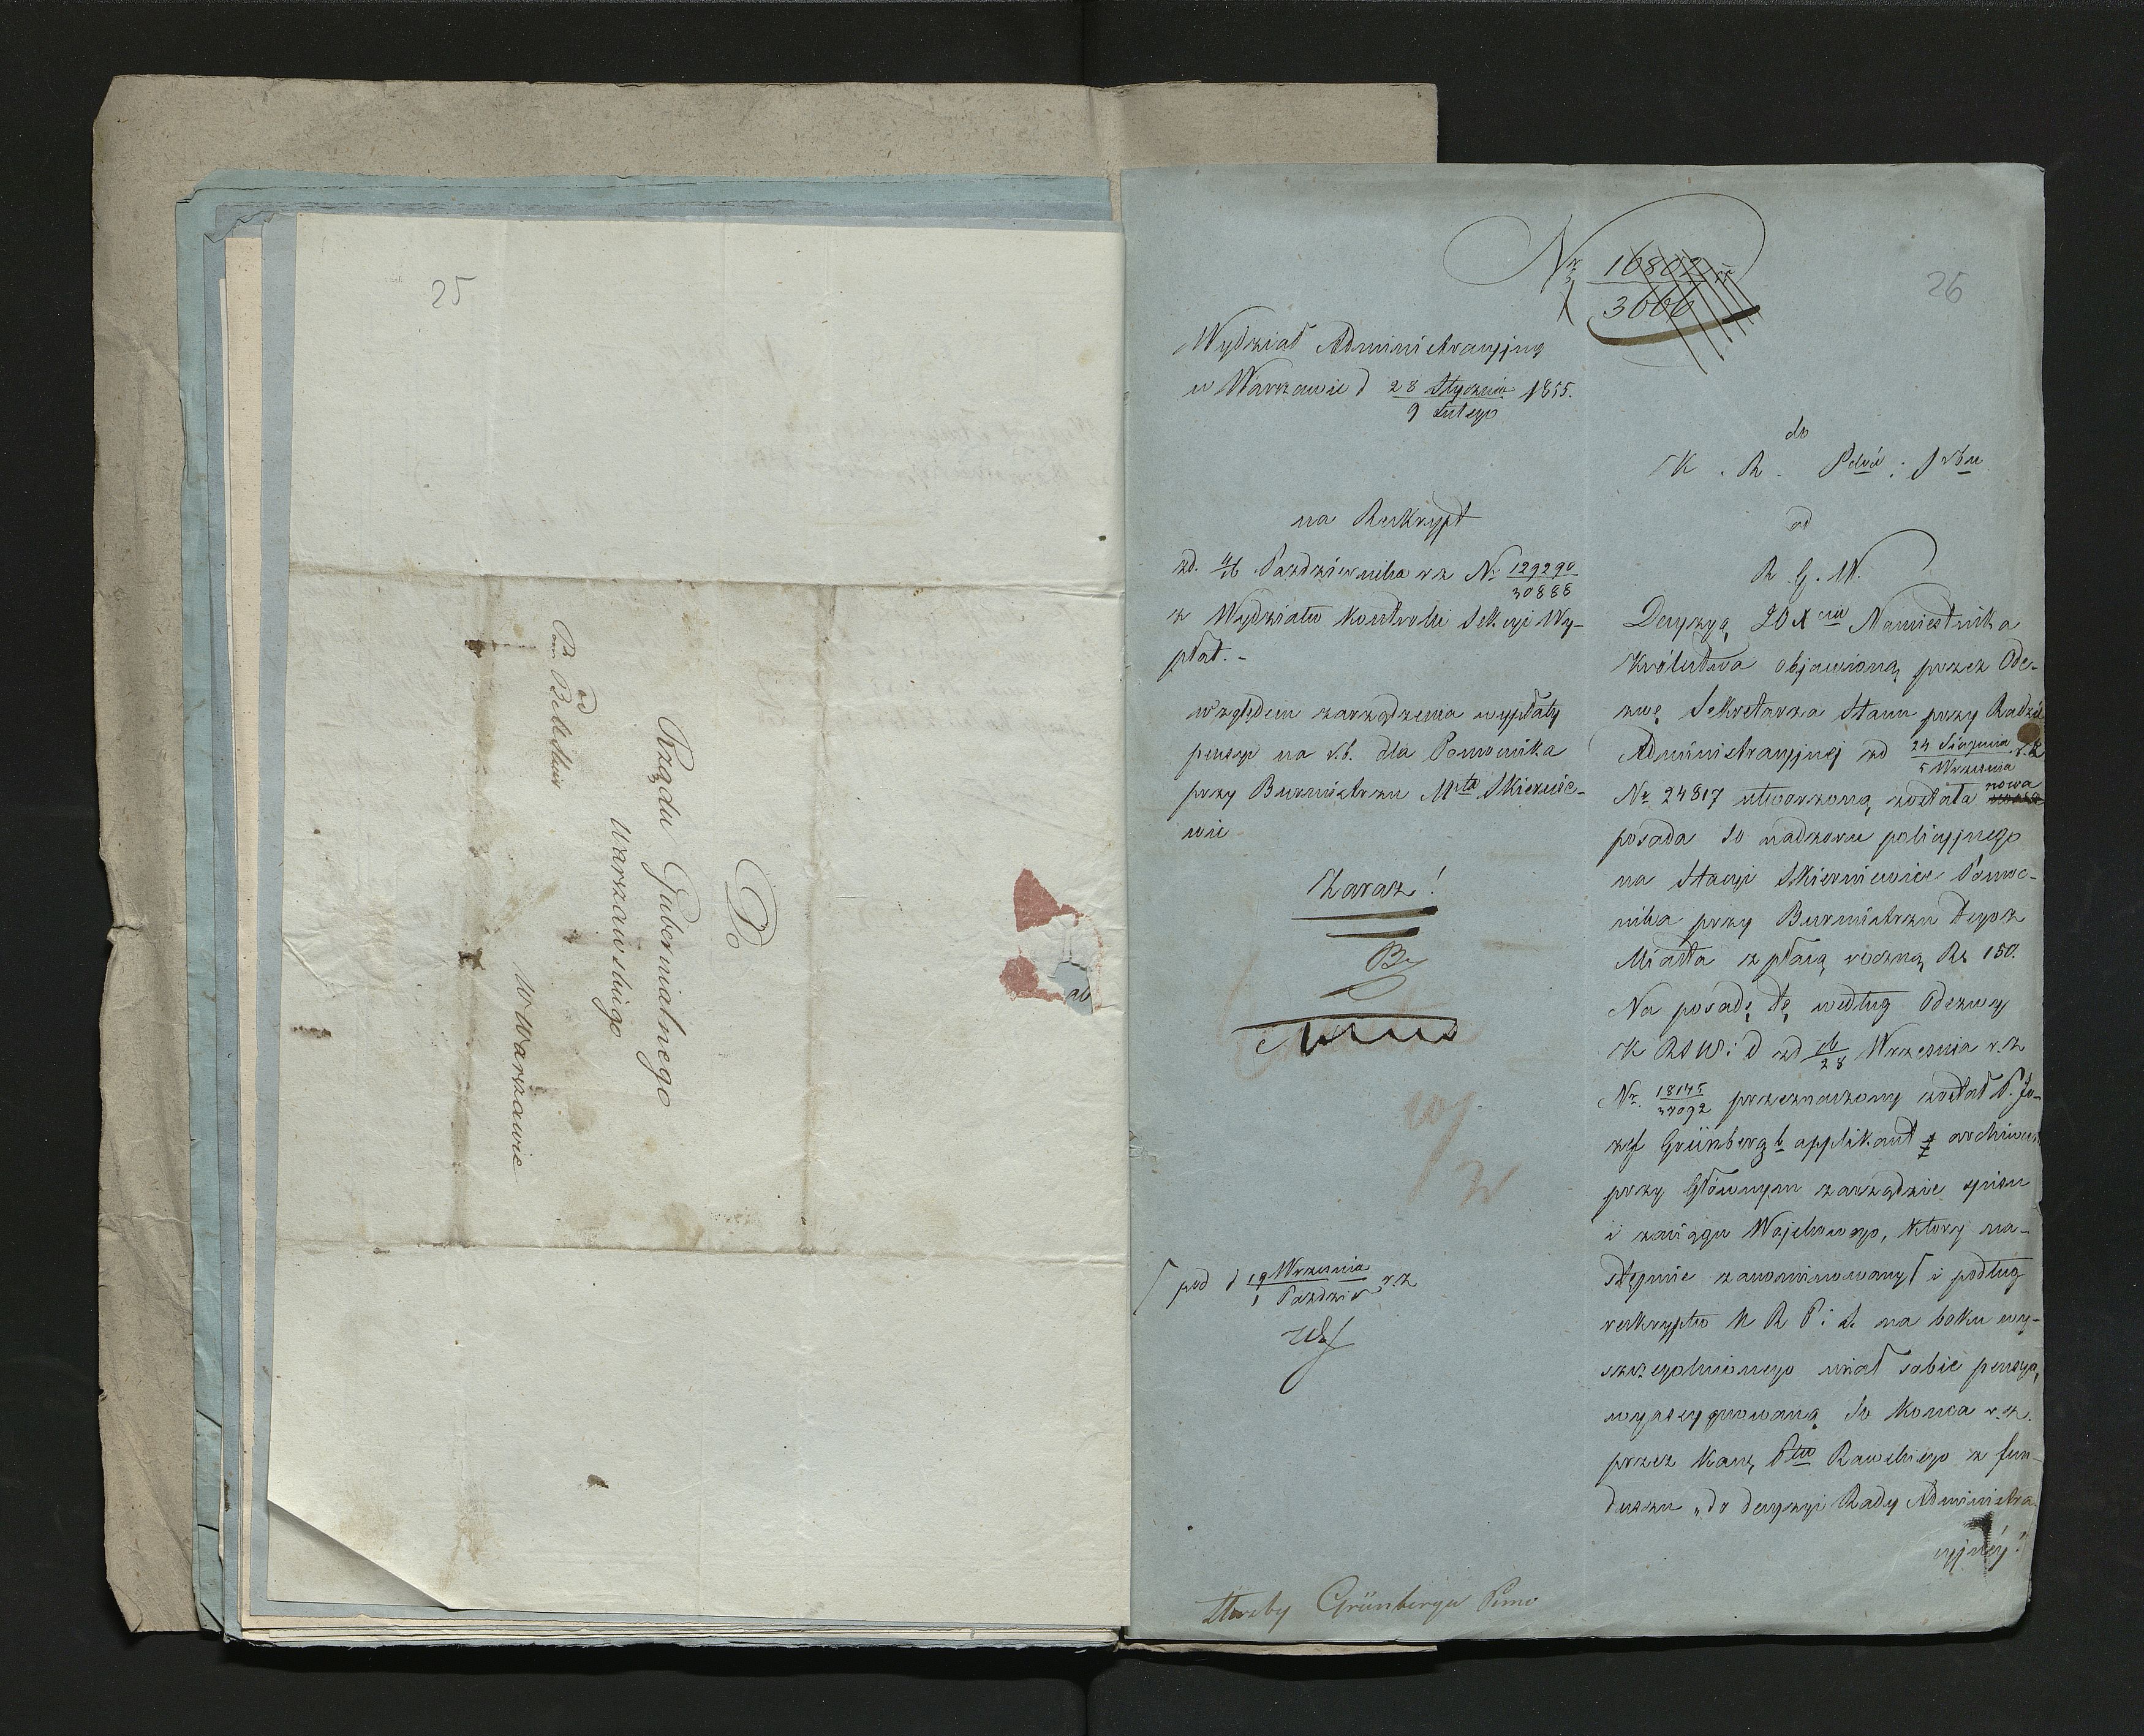 25
Do
Rządu Gubernialnego
Warszawskiego
od
w Warszawie
26
Nr 16802
3666
Wydział Administracyjny
w Warszawie d 28 Stycznia 1855.
9 Lutego
do
K. R. P
na Reskrypt
zd. 4/16 Pazdziernika rz Nr 129290
30888
z Wydziału Kontrolli Sekcyi Wy-
płat. -
względem zarządzenia wypłaty
pensyi na r.b. dla Pomocnika
przy Burmistrzu Msta Skiernie-
wic
Zaraz!
pod d 19 Września rz
1 Pazdzier
Służby Grünberga Pomo
od
R. G. W.
Decyzyą JO Xcia Namiestnika
Królestwa objawioną przez Ode-
zwę Sekretarza Stanu przy Radzie
Administracyjnej zd 24 Sierpnia r.z
5 Września
Nr 24817 utworzoną została nowa
posada do nadzoru policyjnego
na Stacyi Skierniewice Pomoc-
nika przy Burmistrzu tegoż
Miasta z płacą roczną Rs 150.
Na posadę tę według Odezwy
K R S W i D zd 16/28 Września r.z
Nr. 18145
34092 przeznaczony został P. Jó-
zef Grünberg b applikant archiwum
przy Głównym zarządzie spisu
i zaciągu Wojskowego, który na-
stępnie zanominowanył i podług
reskryptu K R P i S. na boku wy-
szczególnionego miał sobie pensyą
wyassygnowaną do końca r.z.
przez Kassę Ptu Rawskiego z fun-
duszu „do decyzyi Rady Administra
cyjnéj"